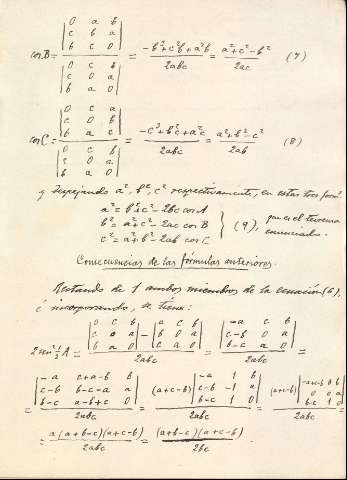 cos B = | 0 a b ; c b a ; b c 0 | / | 0 c b ; c 0 a ; b a 0 | = -b³+c²b+a²b / 2abc = a²+c²-b² / 2ac (7)
cos C = | 0 c a ; c 0 b ; b a c | / | 0 c b ; c 0 a ; b a 0 | = -c³+b²c+a²c / 2abc = a²+b²-c² / 2ab (8)
y despejando a², b², c² respectivamente, en estas tres
a² = b²+c²-2bc cos A
b² = a²+c²-2ac cos B } (9), que es el teorema enunciado.
c² = a²+b²-2ab cos C
Consecuencias de las fórmulas anteriores.
Restando de 1 ambos miembros de la ecuación (6),
é incorporando, se tiene:
2 sen² ½ A = | 0 c b ; c 0 a ; b a 0 | - | a c b ; b 0 a ; c a 0 | / 2abc = | -a c b ; c-b 0 a ; b-c a 0 | / 2abc =
= | -a c+a-b b ; c-b b-c-a a ; b-c a-b+c 0 | / 2abc = (a+c-b) | -a 1 b ; c-b -1 a ; b-c 1 0 | / 2abc = (a+c-b) | -a+c-b 0 b ; 0 0 a ; b-c 1 0 | / 2abc =
= a(a+b-c)(a+c-b) / 2abc = (a+b-c)(a+c-b) / 2bc